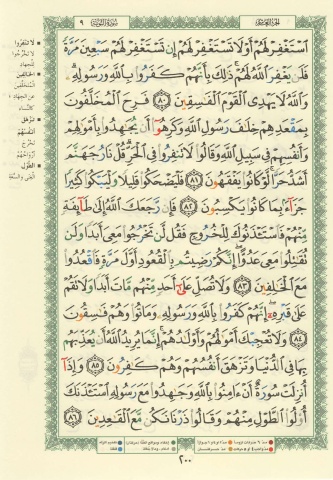 الجزء العاشر
سورة التوبة ٩
ٱسْتَغْفِرْ لَهُمْ أَوْ لَا تَسْتَغْفِرْ لَهُمْ إِن تَسْتَغْفِرْ لَهُمْ سَبْعِينَ مَرَّةً
فَلَن يَغْفِرَ ٱللَّهُ لَهُمْ ذَٰلِكَ بِأَنَّهُمْ كَفَرُوا۟ بِٱللَّهِ وَرَسُولِهِۦ
وَٱللَّهُ لَا يَهْدِى ٱلْقَوْمَ ٱلْفَٰسِقِينَ ٨٠ فَرِحَ ٱلْمُخَلَّفُونَ
بِمَقْعَدِهِمْ خِلَٰفَ رَسُولِ ٱللَّهِ وَكَرِهُوٓا۟ أَن يُجَٰهِدُوا۟ بِأَمْوَٰلِهِمْ
وَأَنفُسِهِمْ فِى سَبِيلِ ٱللَّهِ وَقَالُوا۟ لَا تَنفِرُوا۟ فِى ٱلْحَرِّ قُلْ نَارُ جَهَنَّمَ
أَشَدُّ حَرًّا لَّوْ كَانُوا۟ يَفْقَهُونَ ٨١ فَلْيَضْحَكُوا۟ قَلِيلًا وَلْيَبْكُوا۟ كَثِيرًا
جَزَآءًۢ بِمَا كَانُوا۟ يَكْسِبُونَ ٨٢ فَإِن رَّجَعَكَ ٱللَّهُ إِلَىٰ طَآئِفَةٍ
مِّنْهُمْ فَٱسْتَـْٔذَنُوكَ لِلْخُرُوجِ فَقُل لَّن تَخْرُجُوا۟ مَعِىَ أَبَدًا وَلَن
تُقَٰتِلُوا۟ مَعِىَ عَدُوًّا إِنَّكُمْ رَضِيتُم بِٱلْقُعُودِ أَوَّلَ مَرَّةٍ فَٱقْعُدُوا۟
مَعَ ٱلْخَٰلِفِينَ ٨٣ وَلَا تُصَلِّ عَلَىٰٓ أَحَدٍ مِّنْهُم مَّاتَ أَبَدًا وَلَا تَقُمْ
عَلَىٰ قَبْرِهِۦٓ إِنَّهُمْ كَفَرُوا۟ بِٱللَّهِ وَرَسُولِهِۦ وَمَاتُوا۟ وَهُمْ فَٰسِقُونَ
٨٤ وَلَا تُعْجِبْكَ أَمْوَٰلُهُمْ وَأَوْلَٰدُهُمْ إِنَّمَا يُرِيدُ ٱللَّهُ أَن يُعَذِّبَهُم
بِهَا فِى ٱلدُّنْيَا وَتَزْهَقَ أَنفُسُهُمْ وَهُمْ كَٰفِرُونَ ٨٥ وَإِذَآ
أُنزِلَتْ سُورَةٌ أَنْ ءَامِنُوا۟ بِٱللَّهِ وَجَٰهِدُوا۟ مَعَ رَسُولِهِ ٱسْتَـْٔذَنَكَ
أُو۟لُوا۟ ٱلطَّوْلِ مِنْهُمْ وَقَالُوا۟ ذَرْنَا نَكُن مَّعَ ٱلْقَٰعِدِينَ ٨٦
لا تنفروا
لا تخرجوا
للجهاد
الخالفين
المتخلفين
عن الجهاد
كالنساء
تزهق
أنفسهم
تخرج
أرواحهم
الطول
الغنى والسعة
٢٠٠